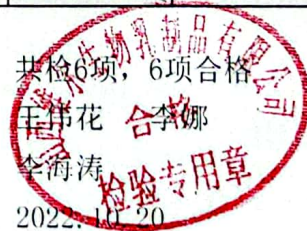 共检6项，6项合格
王伟花 李娜
李海涛
2022.10.20
生物乳制品有限公司
合格
检验专用章